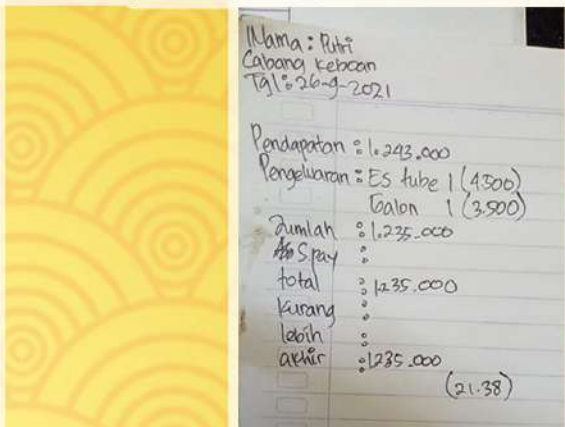 Nama : Putri
Cabang Keboan
Tgl : 26-9-2021
Pendapatan : 1.243.000
Pengeluaran : Es tube 1 (4.500)
Galon 1 (3.500)
Jumlah : 1.235.000
S.pay :
total : 1.235.000
kurang :
lebih :
akhir : 1.235.000
(21.38)